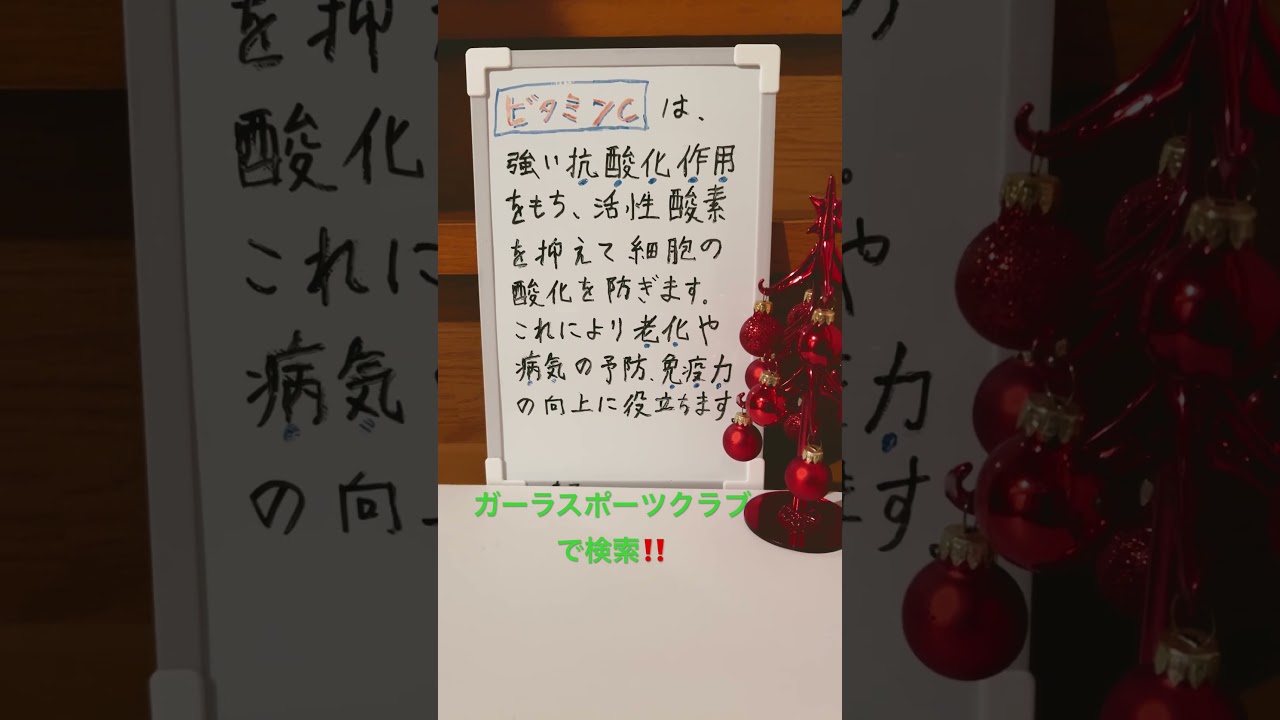 ビタミンC は、
強い抗酸化作用
をもち、活性酸素
を抑えて細胞の
酸化を防ぎます。
これにより老化や
病気の予防、免疫力
の向上に役立ちます
ガーラスポーツクラブ
で検索‼️